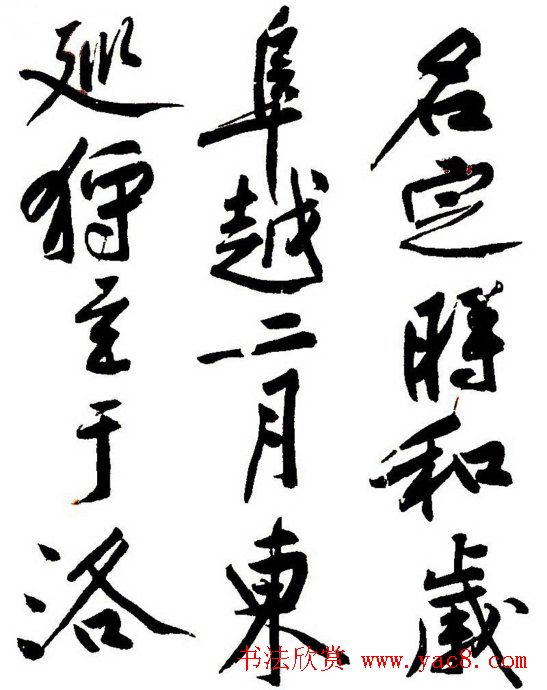 名定時和歲
阜越二月東
巡狩至于洛
书法欣赏 www.yac8.com